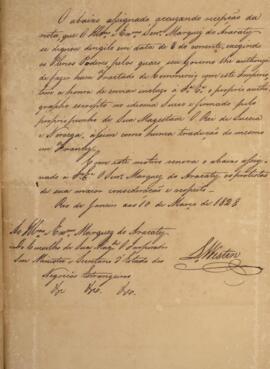 O abaixo assignado accusando recepção da
nota, que O Illmo. e Exmo. Senr. Marquez de Aracaty
se dignou dirigilo em data de 8 do corrente, exigindo
os Plenos Poderes pelos quaes seu Governo lhe authoriza
de fazer hum Tractado de Commercio com este Imperio,
tem a honra de enviar incluzo á S. Exa. o proprio autho-
grapho escripto no idioma Sueco e firmado pelo
proprio punho de Sua Magestade O Rei de Suecia
e Norvega, assim como huma traducção do mesmo
em Francez.
Com este motivo renova o abaixo assig-
nado a S. Exa. O Senr. Marquez de Aracaty, os protestos
de sua maior consideração e respeito.
Rio de Janeiro aos 10 de Março de 1828
Ao Illmo. Exmo. Marquez de Aracaty
do Conselho de Sua Mage. O Imperador
Seu Ministro e Secretario d'Estado dos
Negocios Estrangeiros
Westin